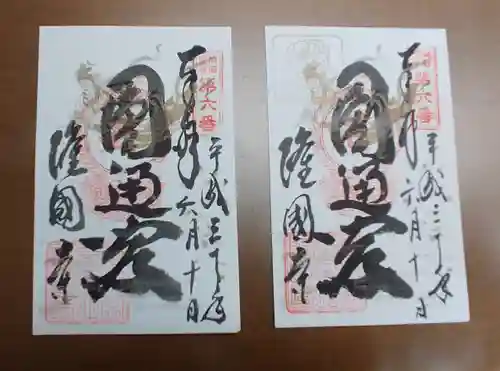 奉拝
平成三十年
六月十日
第六番
圓通宝
隆國寺
奉拝
平成三十年
六月十日
第六番
圓通宝
隆國寺